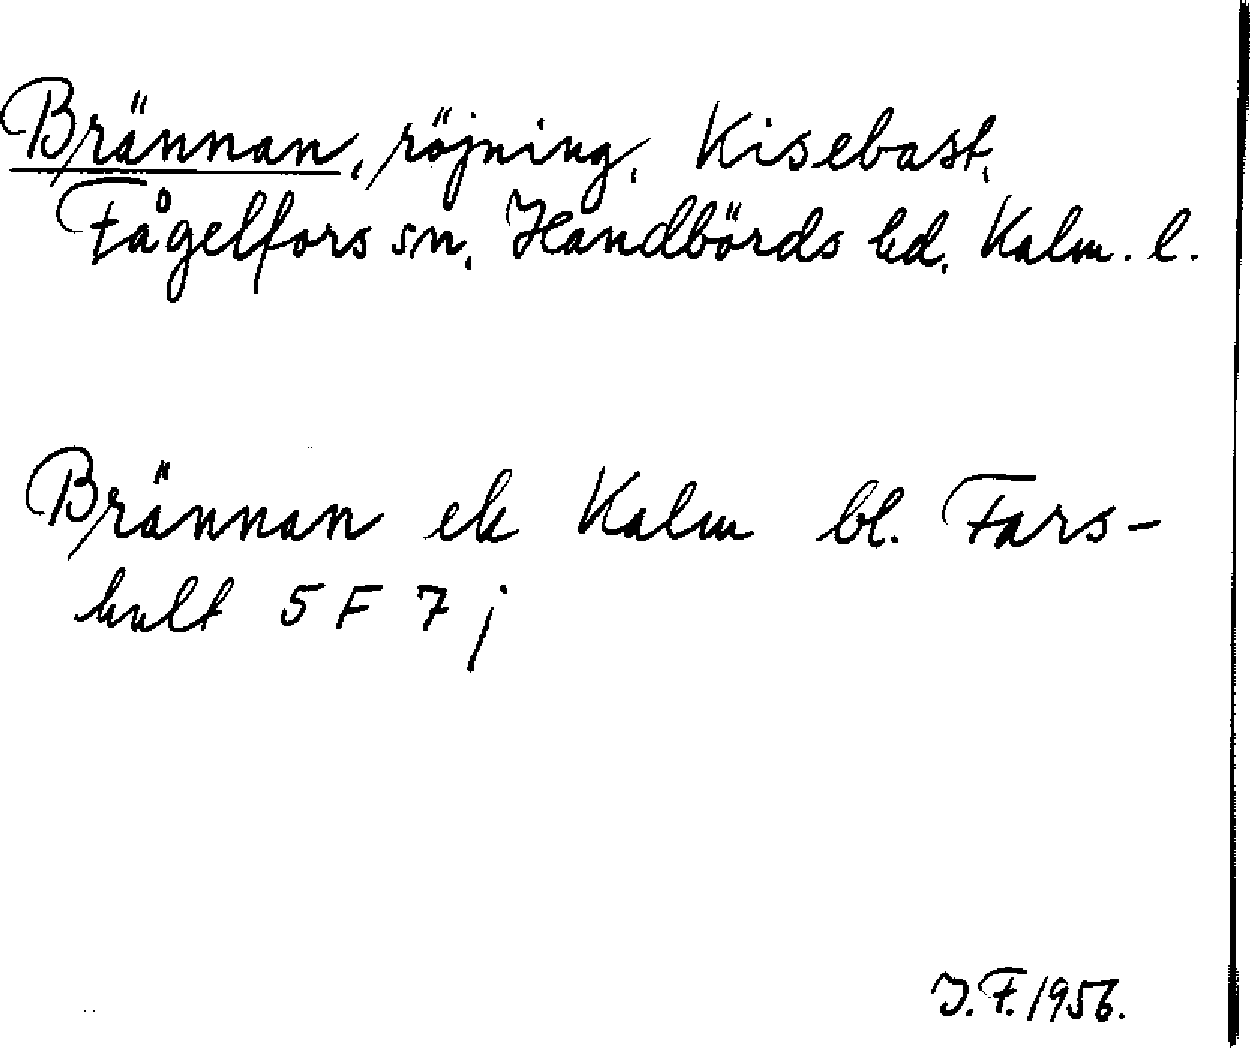 Brännan, röjning, Kisebast,
Fågelfors sn, Handbörds hd, Kalm. l.
Brännan ek Kalm bl. Fars-
hult 5 F 7 j
J.F. 1956.